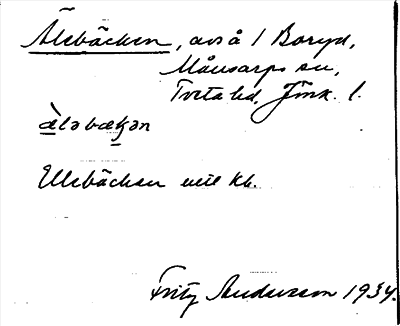 Älebäcken, avs å / Boryd,
Månsarps sn,
Tveta hd, Jönk. l.
æ̀ləbækən
Ellebäcken enl kk.
Fritz Andersson 1934.